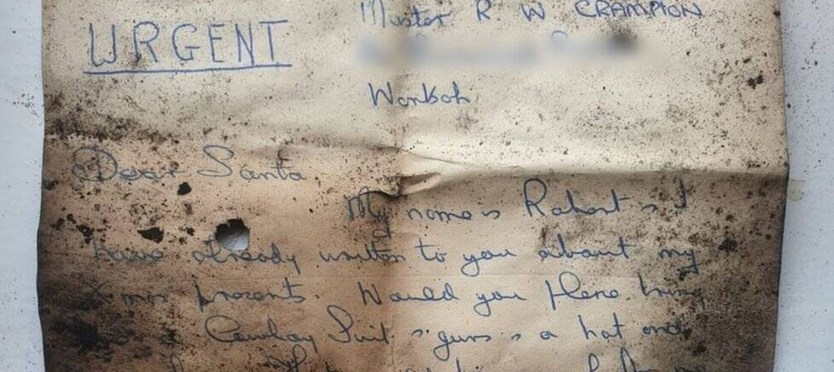 Master R W CRAMPION
URGENT
Dear Santa,
My name is Robert & I
have already written to you about my
X mas presents. Would you please bring
a Cowboy Suit & guns & a hat and